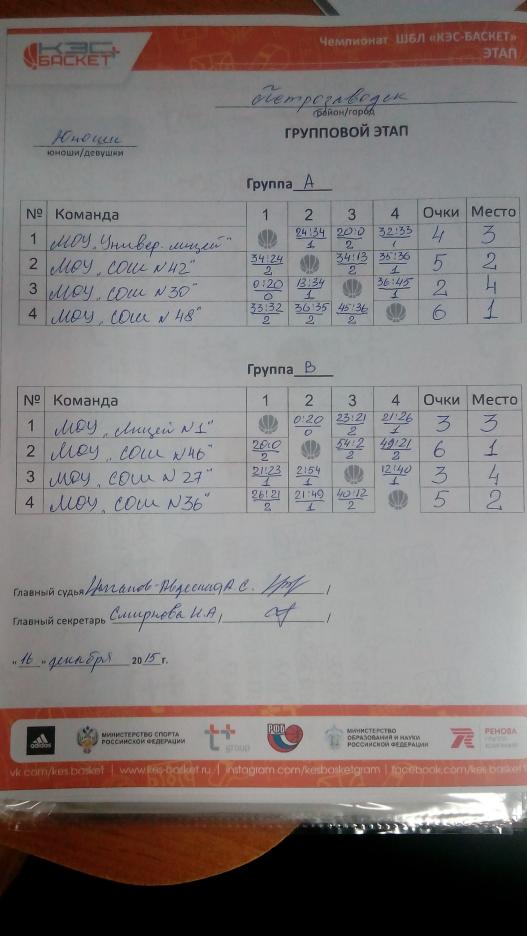 КЭС БАСКЕТ
Чемпионат ШБЛ «КЭС-БАСКЕТ»
ЭТАП
Петрозаводск
район/город
Юноши
юноши/девушки
ГРУППОВОЙ ЭТАП
Группа А
№ Команда 1 2 3 4 Очки Место
1 МОУ „Универ. лицей" 24:34 1 20:0 2 32:33 1 4 3
2 МОУ „СОШ №42" 34:24 2 34:13 2 35:36 1 5 2
3 МОУ „СОШ №30" 0:20 0 13:34 1 36:45 1 2 4
4 МОУ „СОШ №48" 33:32 2 36:35 2 45:36 2 6 1
Группа В
№ Команда 1 2 3 4 Очки Место
1 МОУ „Лицей №1" 0:20 0 23:21 2 21:26 1 3 3
2 МОУ „СОШ №46" 20:0 2 54:2 2 49:21 2 6 1
3 МОУ „СОШ №27" 21:23 1 2:54 1 12:40 1 3 4
4 МОУ „СОШ №36" 26:21 2 21:49 1 40:12 2 5 2
Главный судья А.С. /
Главный секретарь Смирнова Н.А / /
"16" декабря 2015 г.
adidas
МИНИСТЕРСТВО СПОРТА
РОССИЙСКОЙ ФЕДЕРАЦИИ
t+ group
РФБ
МИНИСТЕРСТВО
ОБРАЗОВАНИЯ И НАУКИ
РОССИЙСКОЙ ФЕДЕРАЦИИ
РЕНОВА
ГРУППА
КОМПАНИЙ
vk.com/kes.basket | www.kes-basket.ru | instagram.com/kesbasketgram | facebook.com/kes.basket